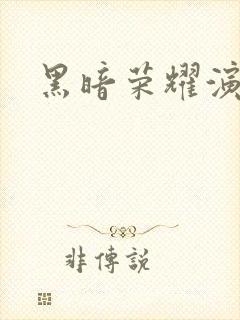 黑暗荣耀演
非傳説